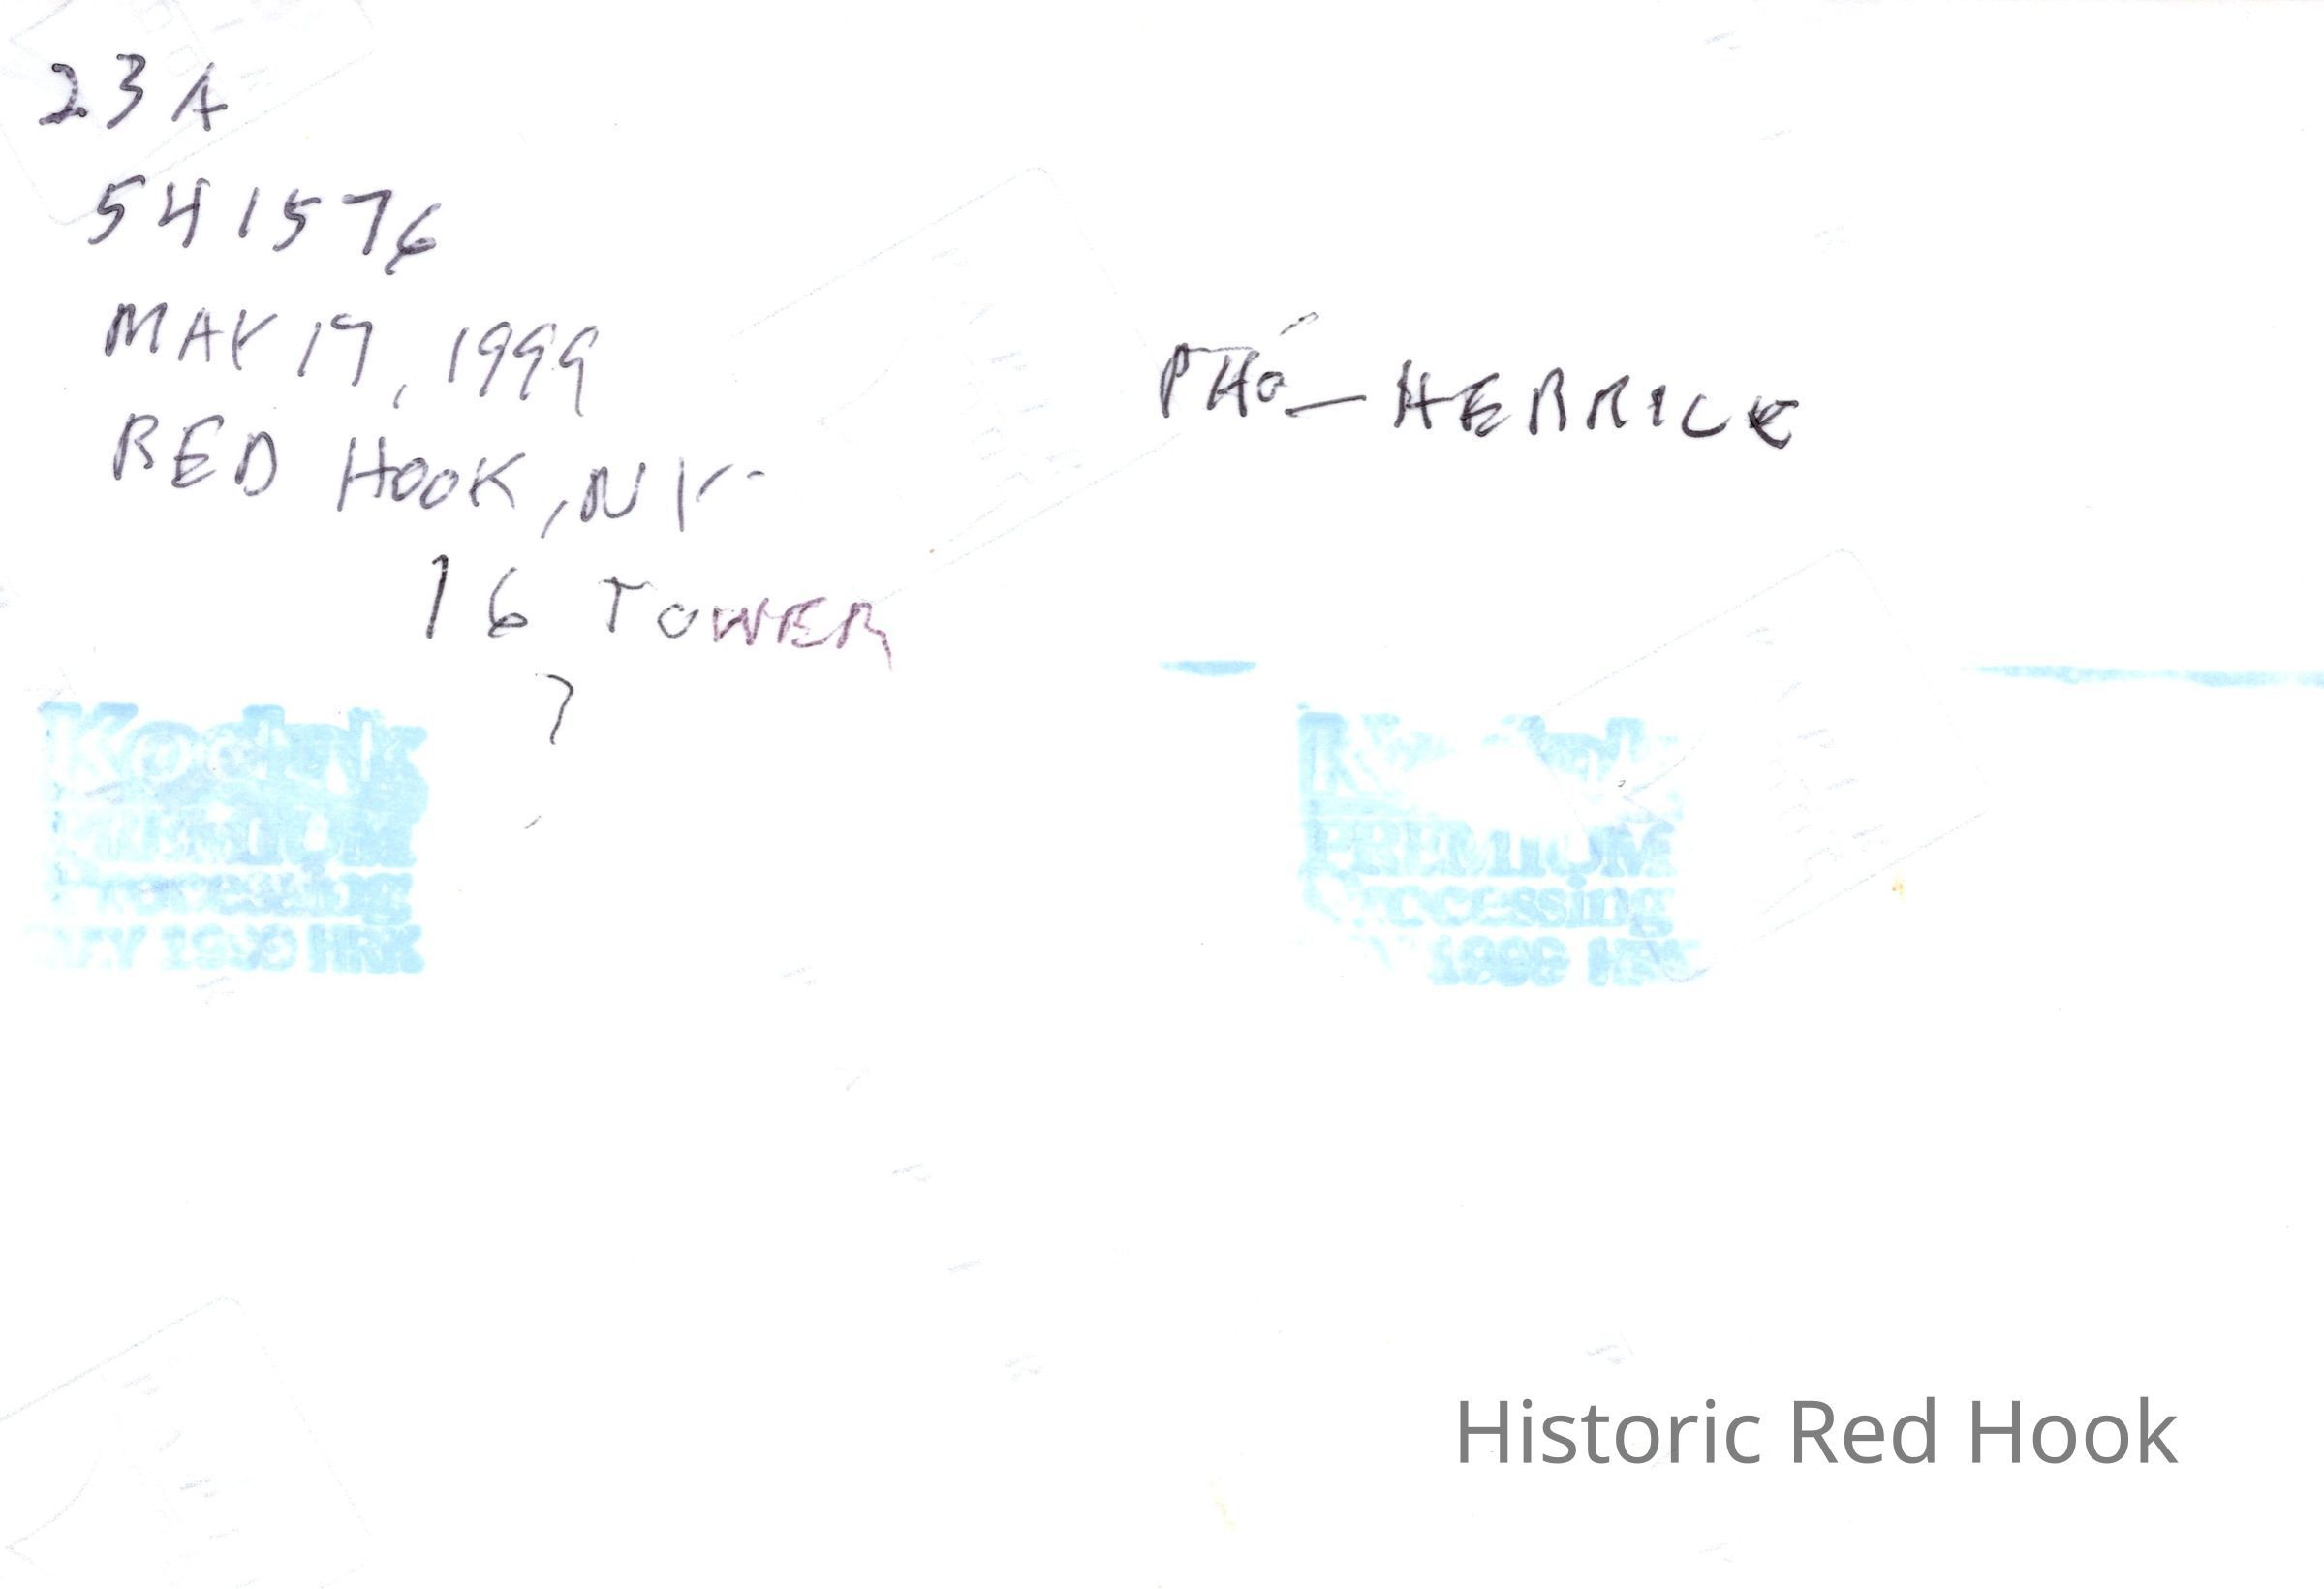 23A
541576
MAY 17, 1999
RED HOOK, NY
16 TOWER
?
PHO - HERRICK
Kodak
PREMIUM
Processing
1999 HRK
Kodak
PREMIUM
Processing
1999 HRK
Historic Red Hook